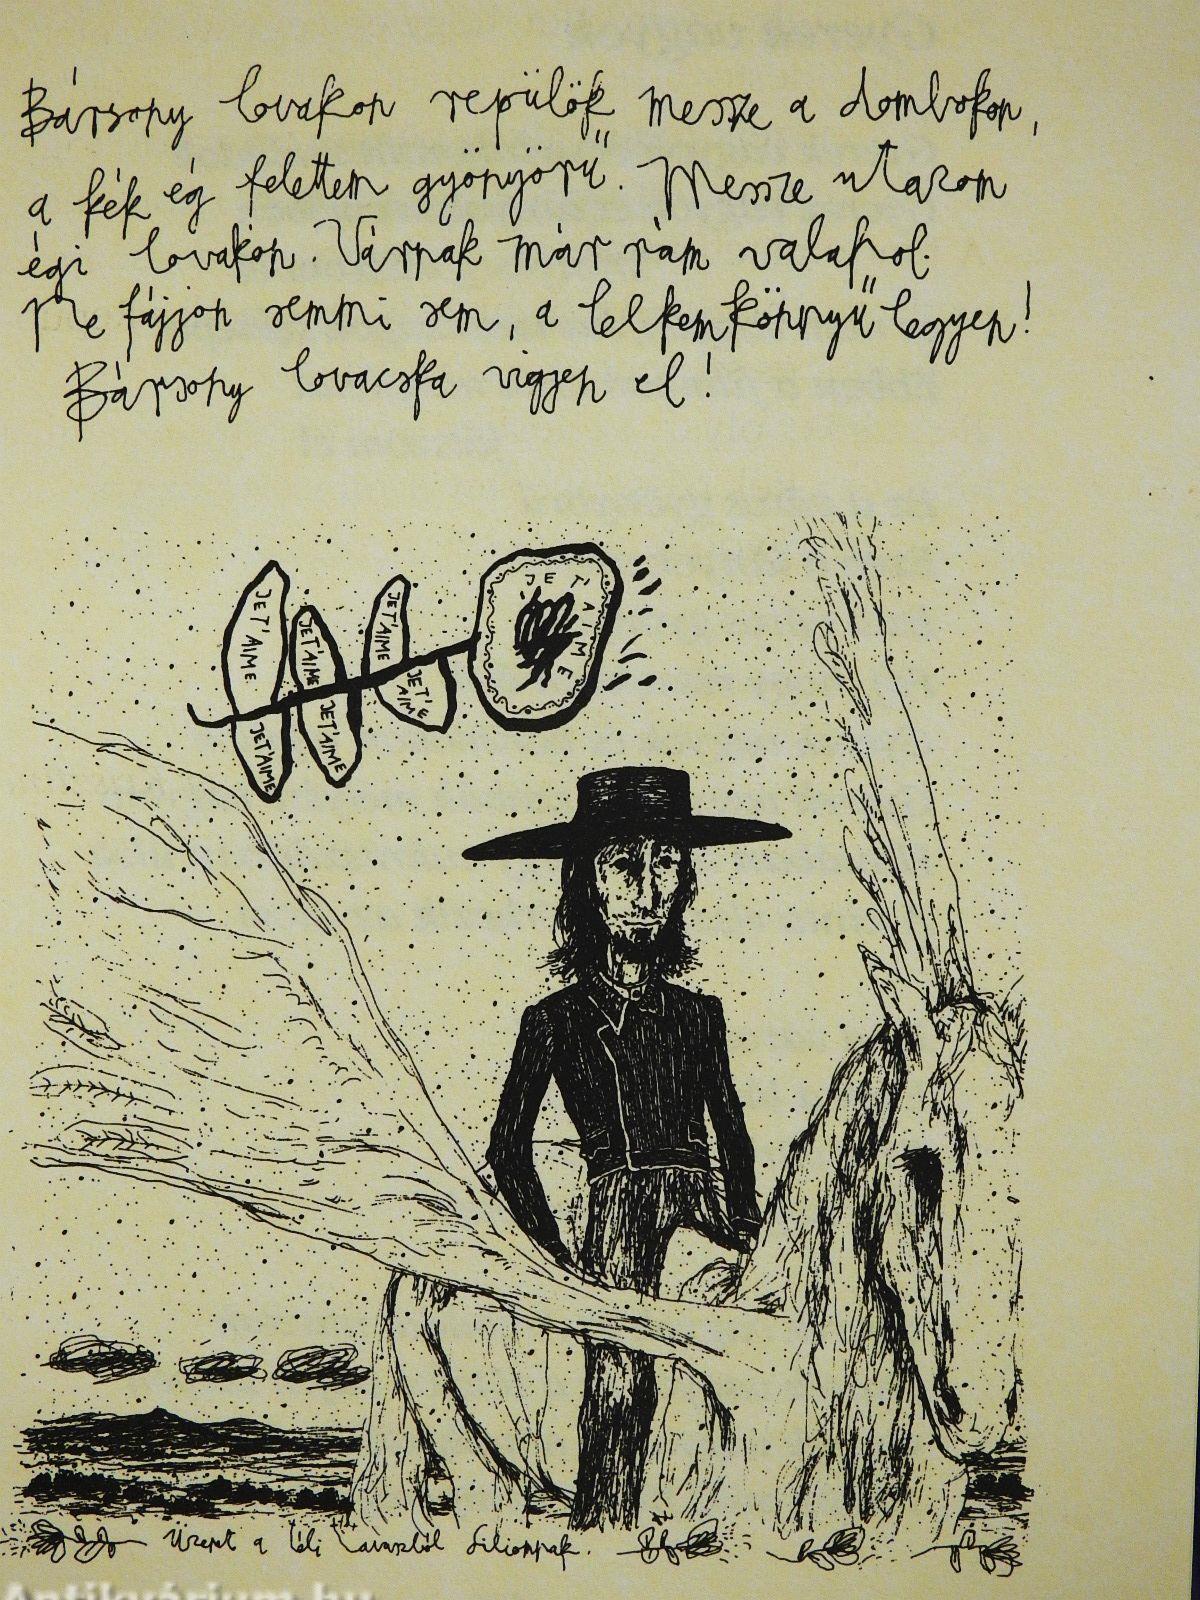 Bársony lovakon repülök messze a dombokon,
a kék ég felettem gyönyörű. Messze utazom
égi lovakon. Várnak már rám valahol.
Ne fájjon semmi sem, a lelkem könnyű legyen!
Bársony lovacska vigyen el!
JE T'AIME
JE T'AIME
JE T'AIME
JE T'AIME
JE T'AIME
JE T'AIME
JE T'AIME
Üzenet a téli tavaszból Lilionnak.
Antikvárium.hu